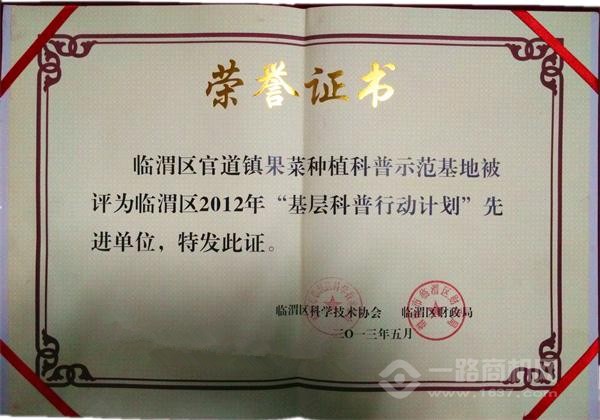 荣誉证书
临渭区官道镇果菜种植科普示范基地被
评为临渭区2012年“基层科普行动计划”先
进单位，特发此证。
临渭区科学技术协会 临渭区财政局
二〇一三年五月
一路商机网
www.1637.com